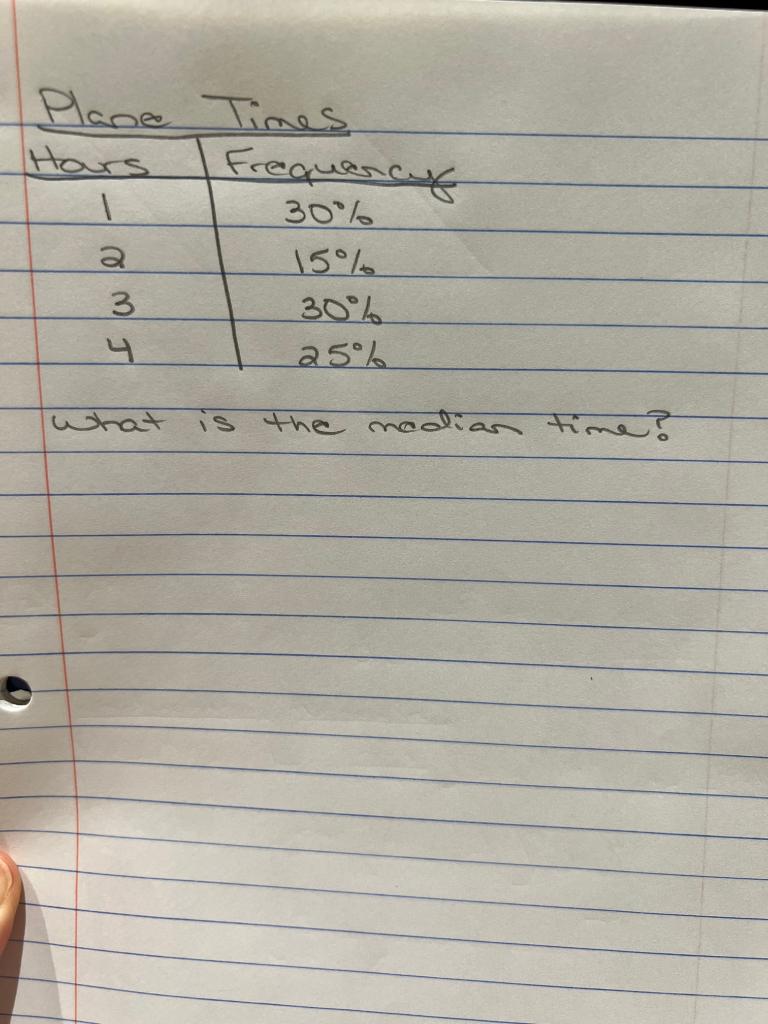 Plane Times
Hours Frequency
1 30%
2 15%
3 30%
4 25%
What is the median time?